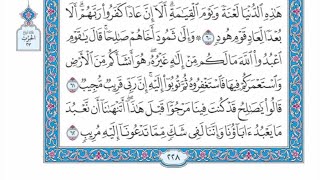 هَٰذِهِ ٱلدُّنْيَا لَعْنَةً وَيَوْمَ ٱلْقِيَٰمَةِ أَلَآ إِنَّ عَادًا كَفَرُوا۟ رَبَّهُمْ أَلَا
بُعْدًا لِّعَادٍ قَوْمِ هُودٍ ٦٠ وَإِلَىٰ ثَمُودَ أَخَاهُمْ صَٰلِحًا قَالَ يَٰقَوْمِ
ٱعْبُدُوا۟ ٱللَّهَ مَا لَكُم مِّنْ إِلَٰهٍ غَيْرُهُۥ هُوَ أَنشَأَكُم مِّنَ ٱلْأَرْضِ
وَٱسْتَعْمَرَكُمْ فِيهَا فَٱسْتَغْفِرُوهُ ثُمَّ تُوبُوٓا۟ إِلَيْهِ إِنَّ رَبِّى قَرِيبٌ مُّجِيبٌ ٦١
قَالُوا۟ يَٰصَٰلِحُ قَدْ كُنتَ فِينَا مَرْجُوًّا قَبْلَ هَٰذَآ أَتَنْهَىٰنَآ أَن نَّعْبُدَ
مَا يَعْبُدُ ءَابَآؤُنَا وَإِنَّنَا لَفِى شَكٍّ مِّمَّا تَدْعُونَآ إِلَيْهِ مُرِيبٍ ٦٢
٢٢٨